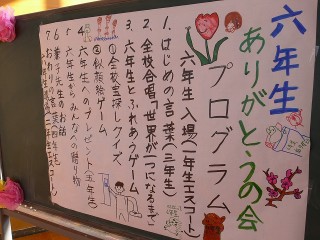 六年生
ありがとうの会
プログラム
六年生 入場(一年生エスコート)
1. はじめの言葉(三年生)
2. 全校合唱「世界が一つになるまで」
3. 六年生とふれあうゲーム
①全校宝探しクイズ
②似顔絵ゲーム
4 六年生へのプレゼント(五年生)
5 六年生からみんなへの贈り物
6
先生のお話
7 おわりの言葉(四年生)